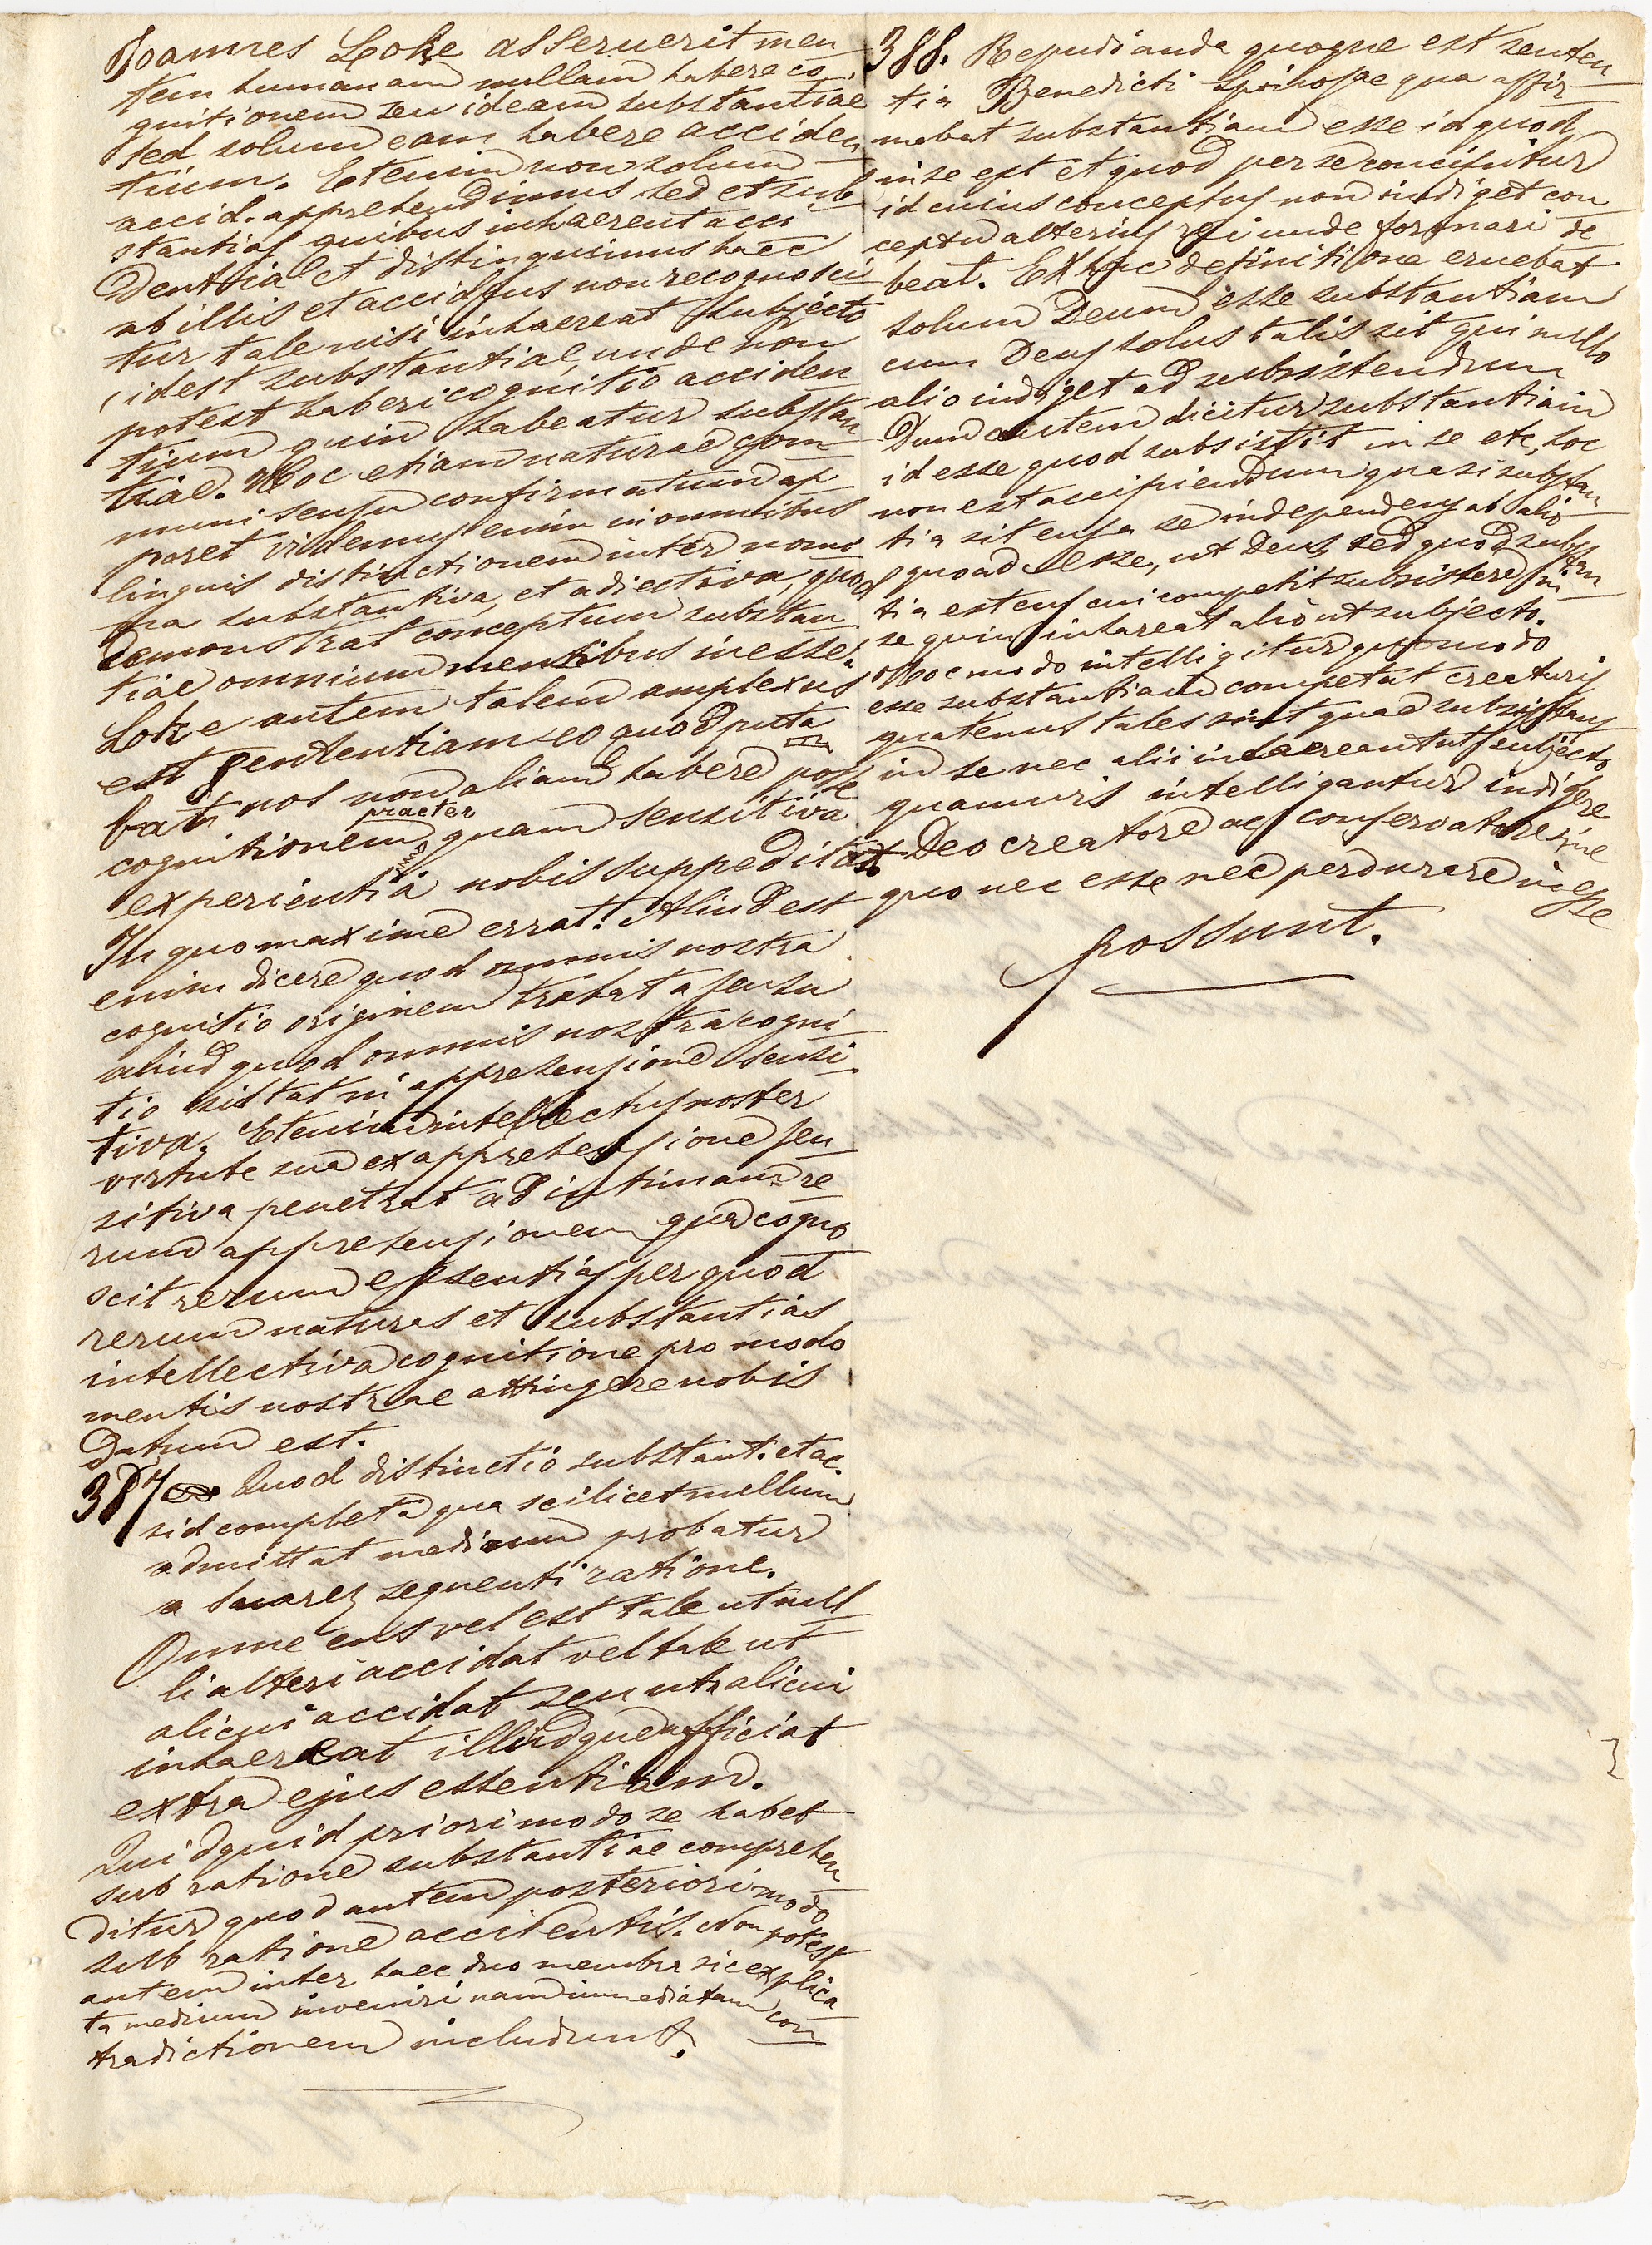 Joannes Loke asseruerit men
tem humanam nullam habere co
gnitionem seu ideam substantiae
sed solum eam habere acciden
tium. Etenim non solum
accid. apprehendimus sed et sub
stantias quibus inhaerent acci
dentia et distinguimus haec
ab illis et accidens non recognosci
tur tale nisi inhaereat subjecto
idest substantiae, unde non
potest haberi cognitio acciden
tium quin habeatur substan
tiae. Hoc etiam naturae com
muni sensu confirmatum ap
paret videmus enim in omnibus
linguis distinctionem inter nomi
na substantiva, et adiectiva, quod
demonstrat conceptum substan
tiae omnium mentibus inesse.
Loke autem talem amplexus
est sententiam eo quod puta
bat nos non aliam habere posse
cognitionem praeter quam sensitiva
experientia nobis suppeditat
In quo maxime errat. Aliud est
enim dicere quod omnis nostra
cognitio originem trahat a sensu
aliud quod omnis nostra cogni
tio sistat in apprehensione sensi
tiva. Etenim intellectus noster
virtute sua ex apprehensione sen
sitiva penetrat ad intimam re
rum apprehensionem qua cogno
scit rerum essentias per quod
rerum naturas et substantias
intellectiva cognitione pro modo
mentis nostrae attingere nobis
datum est.
387 Quod distinctio substant. et ac.
sid completa qua scilicet nullum
admittat medium probatur
a Suarez sequenti ratione.
Omne ens vel est tale ut null
li alteri accidat vel tale ut
alicui accidat seu ut alicui
inhaereat illudque afficiat
extra ejus essentiam.
Quidquid priori modo se habet
sub ratione substantiae comprehen
ditur quod autem posteriori modo
sub ratione accidentis. Non potest
autem inter haec duo membra sic explica
ta medium inveniri nam immediatam con
tradictionem includunt.
388. Repudianda quoque est senten
tia Benedicti Spinosae qua affir
mabat substantiam esse id quod
in se est et quod per se concipitur
id cuius conceptus non indiget con
ceptu alterius rei unde formari de
beat. Ex hac definitione eruebat
solum Deum esse substantiam
cum Deus solus talis sit qui nullo
alio indiget ad subsistendum
Dum autem dicitur substantiam
id esse quod subsistit in se etc, hoc
non est accipiendum quasi substan
tia sit ens a se independens ab alio
quoad esse, ut Deus sed quod substan
tia est ens cui competit subsistere in
se quin inhareat alio ut subjecto.
Hoc modo intelligitur quomodo
esse substantiam competat creaturis
quatenus tales sint quae subsistant
in se nec alii inhaereant ut subjecto
quamvis intelligantur indigere
Deo creatore ac conservatore sine
quo nec esse nec perdurare in esse
possunt.